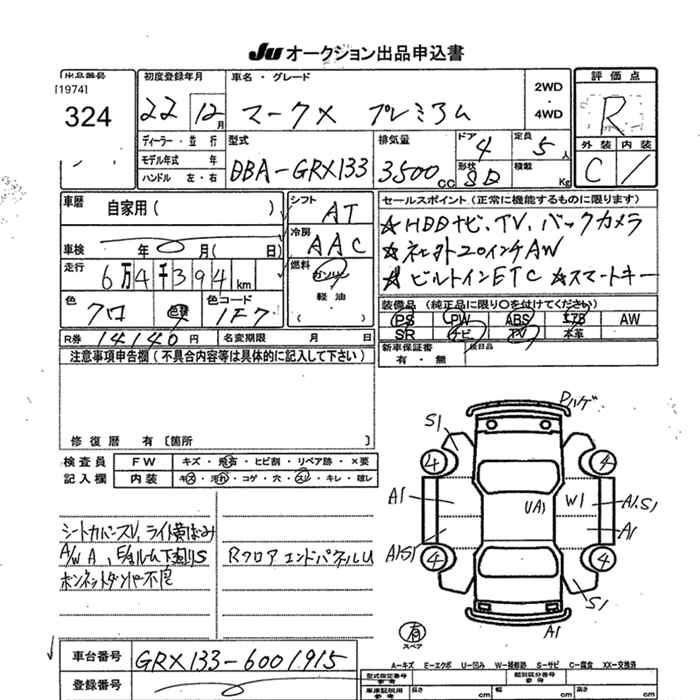 JU オークション出品申込書
出品番号
[1974]
324
初度登録年月
22 12月
車名・グレード
マークX プレミアム
2WD
・
4WD
評価点
R
外装 内装
C /
ディーラー・並行
モデル年式 年
ハンドル 左・右
型式
DBA-GRX133
排気量
3500cc
ドア
4
形状
SD
定員
5人
積載
Kg
車歴
自家用( )
車検 年 月( 日)
走行
6万4千394km
色
クロ
色替
色コード
1F7
シフト
AT
冷房
AAC
燃料
ガソリン
軽油
セールスポイント(正常に機能するものに限ります)
☆HDDナビ、TV、バックカメラ
☆社外20インチAW
☆ビルトインETC ☆スマートキー
装備品(純正品に限り○を付けてください)
PS PW ABS エアB AW
SR ナビ TV 本革
新車保証書
有・無
後日品
R券 14140円 名変期限 月 日
注意事項申告欄(不具合内容等は具体的に記入して下さい)
修復歴 有〔箇所 〕
検査員
記入欄
FW キズ・飛石・ヒビ割・リペア跡・×要
内装 キズ・汚れ・コゲ・穴・スレ・キレ・破レ
シートカバースレ、ライト黄ばみ
A/W A、E/gルーム下廻りS
ボンネットダンパー不良
Rフロアエンドパネル U
Pハゲ
S1
4 4
A1 UA1 W1 A1.S1
A1
A1S1
4 4
S1
A1
有
スペア
車台番号 GRX133-6001915
登録番号
A…キズ E…エクボ U…凹み W…補修跡 S…サビ C…腐食 XX…交換済
型式指定番号
参考
類別区分番号
参考
車庫証明用
参考
長さ cm 幅 cm 高さ cm